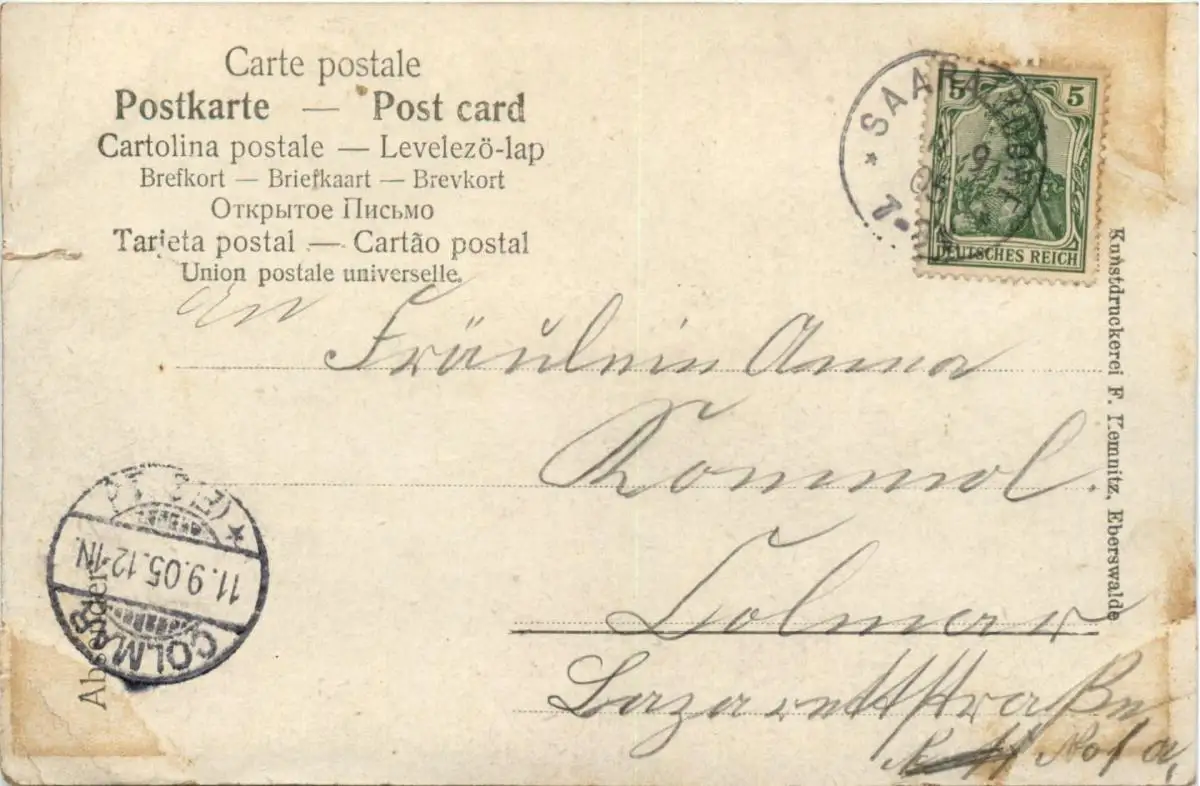 Carte postale
Postkarte — Post card
Cartolina postale — Levelezö-lap
Brefkort — Briefkaart — Brevkort
Открытое Письмо
Tarjeta postal — Cartão postal
Union postale universelle.
5 5
DEUTSCHES REICH
An
Fräulein Anna
Rommel.
Colmar
Lazarettstraße
No 1 a,
Kunstdruckerei F. Kemnitz, Eberswalde
Absender
COLMAR
11.9.05.12-1N.
(ELS.)